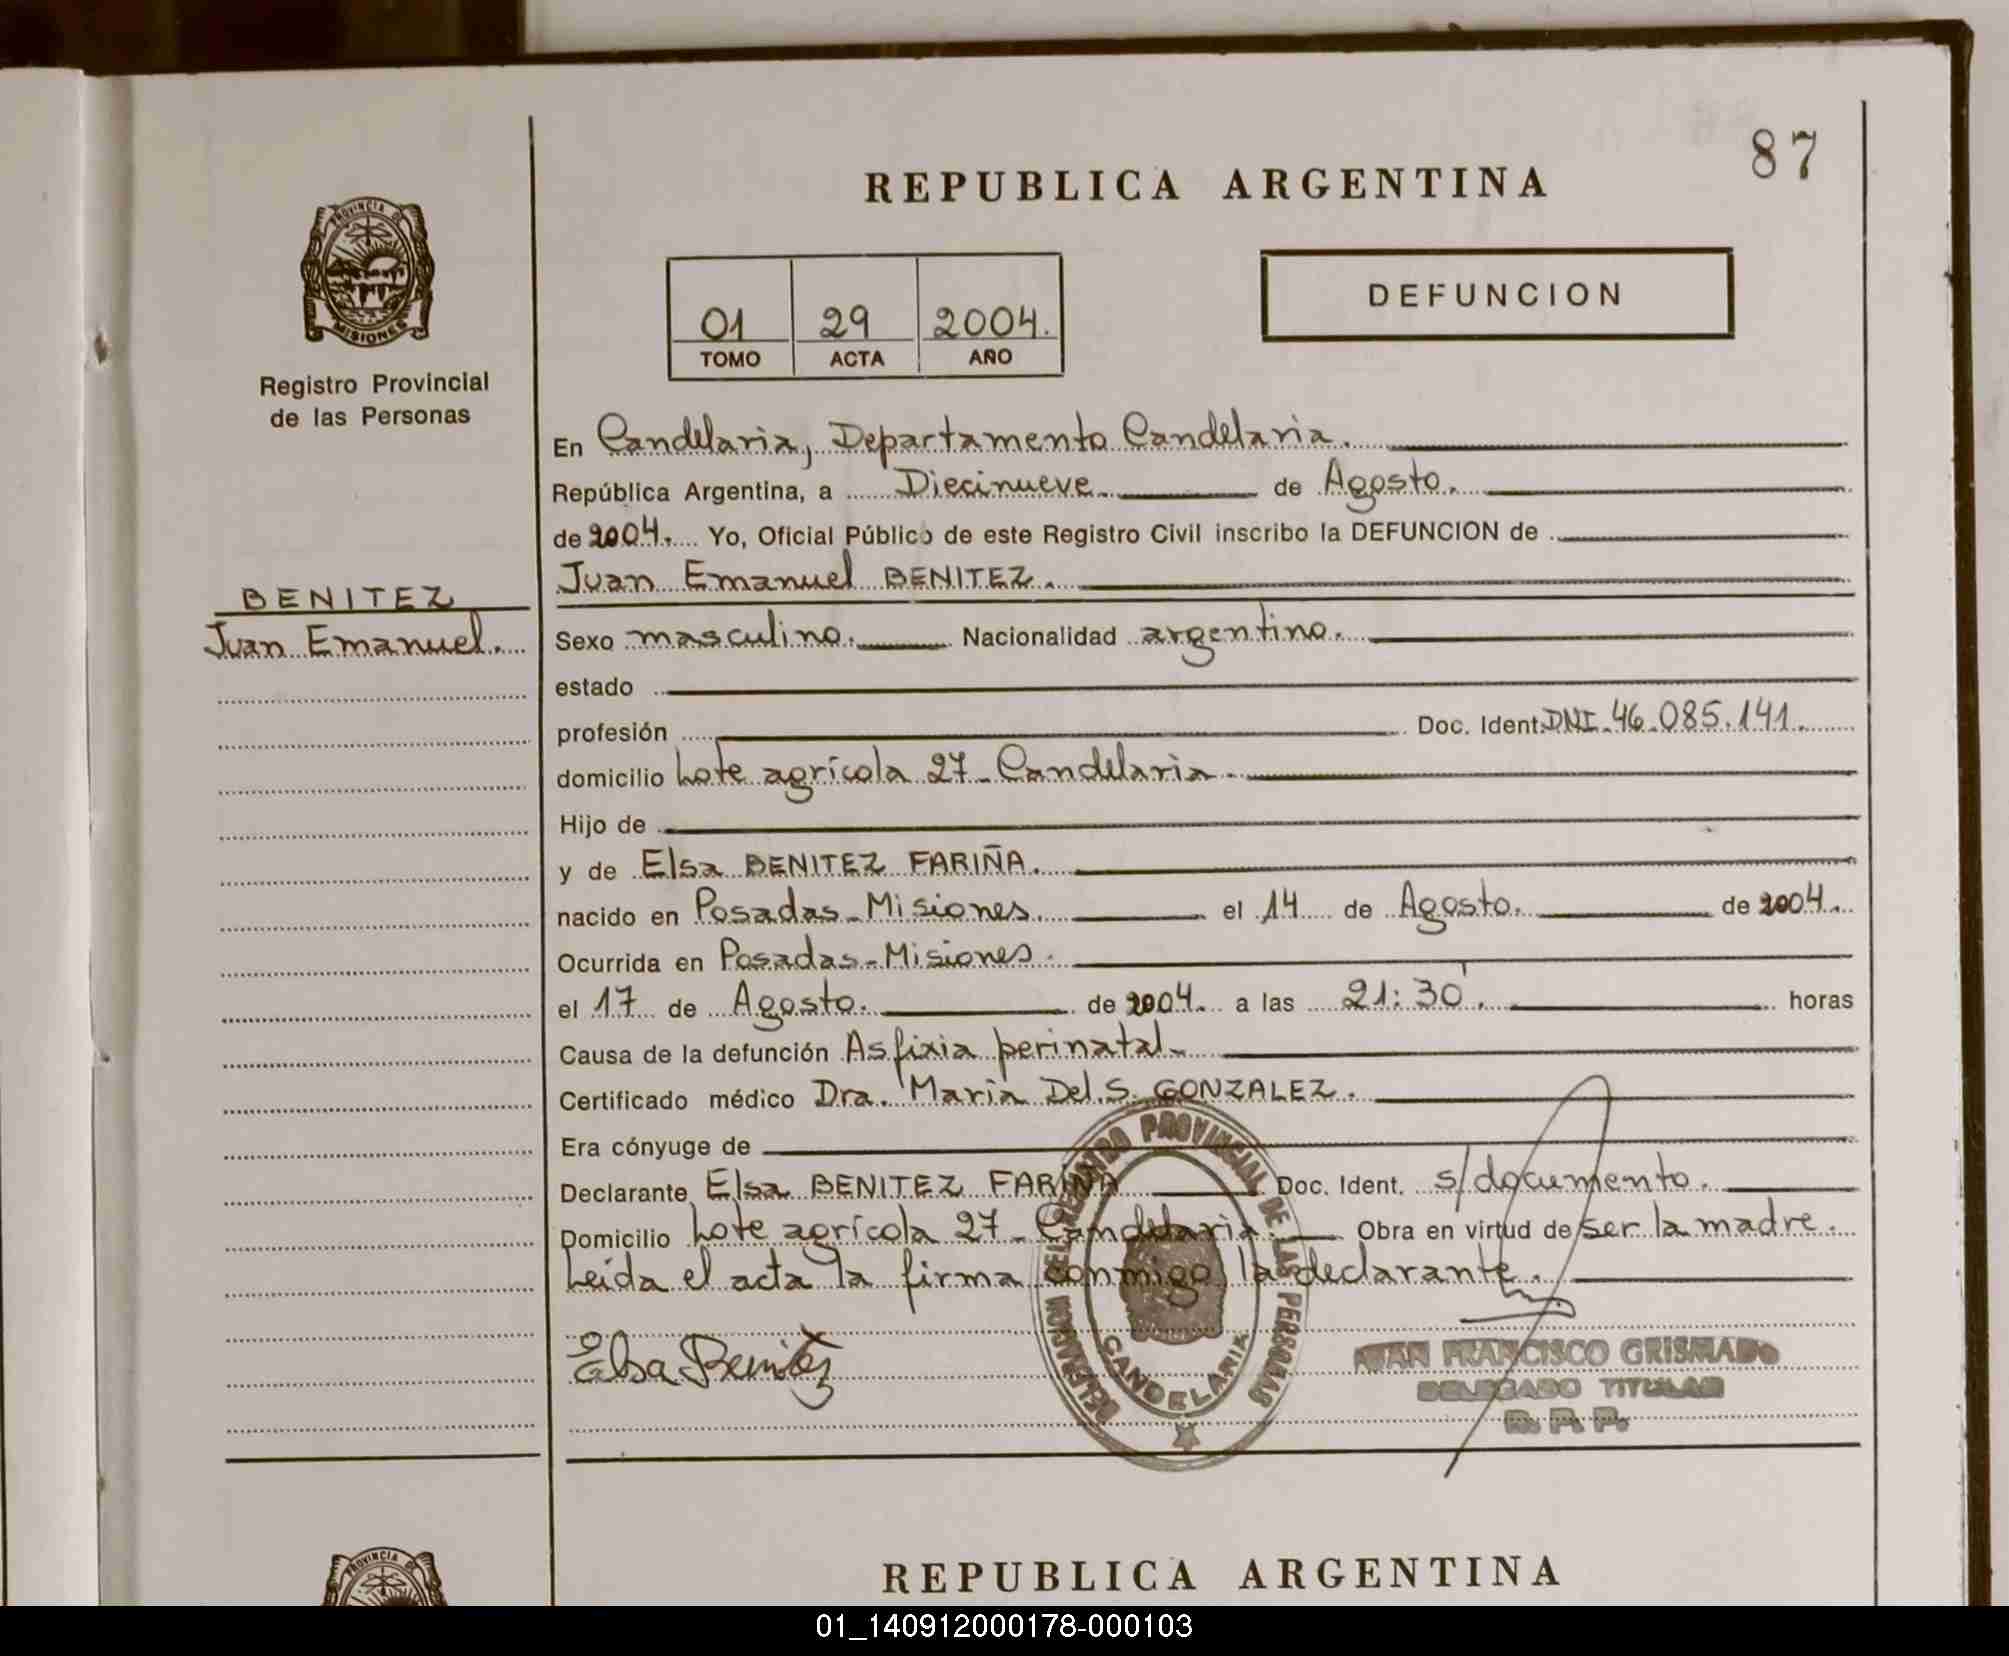 87
REPUBLICA ARGENTINA
PROVINCIA DE
MISIONES
Registro Provincial
de las Personas
01 29 2004.
TOMO ACTA AÑO
DEFUNCION
En Candelaria, Departamento Candelaria.
República Argentina, a Diecinueve. de Agosto.
de 2004. Yo, Oficial Público de este Registro Civil inscribo la DEFUNCION de
Juan Emanuel BENITEZ.
BENITEZ
Juan Emanuel.
Sexo masculino. Nacionalidad argentino.
estado
profesión Doc. Ident. DNI. 46.085.141.
domicilio Lote agrícola 27 - Candelaria.
Hijo de
y de Elsa BENITEZ FARIÑA.
nacido en Posadas - Misiones. el 14 de Agosto. de 2004.
Ocurrida en Posadas - Misiones.
el 17 de Agosto. de 2004. a las 21:30'. horas
Causa de la defunción Asfixia perinatal.
Certificado médico Dra. Maria Del S. GONZALEZ.
Era cónyuge de
Declarante Elsa BENITEZ FARIÑA Doc. Ident. s/documento.
Domicilio Lote agrícola 27 - Candelaria. Obra en virtud de ser la madre.
Leida el acta la firma conmigo la declarante.
Elsa Benitez
DELEGACION DEL REGISTRO PROVINCIAL DE LAS PERSONAS
CANDELARIA
JUAN FRANCISCO GRISMADO
DELEGADO TITULAR
R. P. P.
PROVINCIA DE
REPUBLICA ARGENTINA
01_140912000178-000103